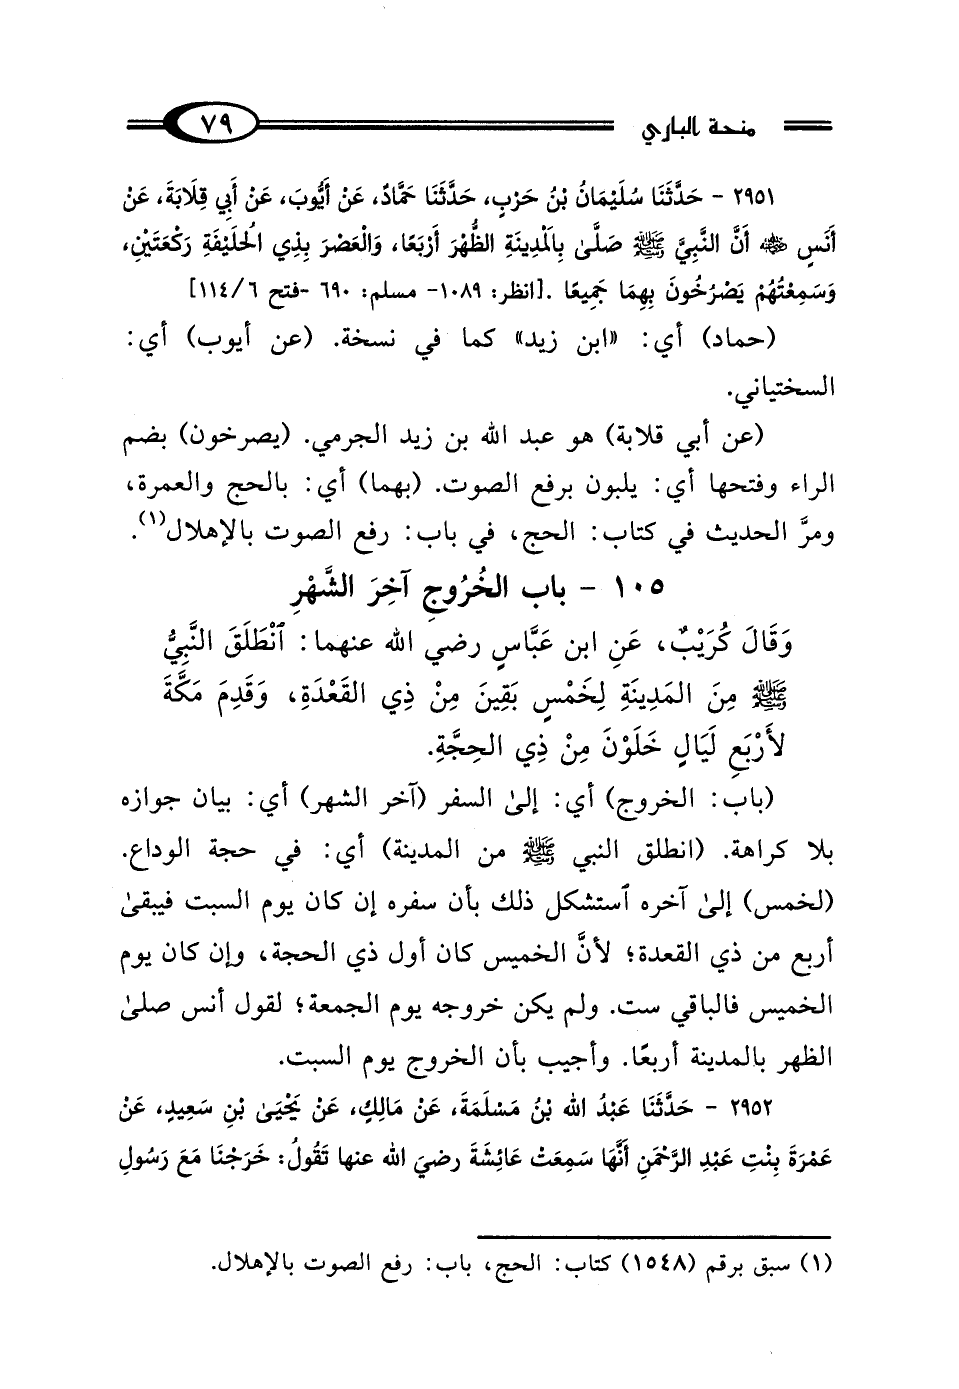 منحة الباري ٧٩
٢٩٥١ - حَدَّثَنَا سُلَيْمَانُ بْنُ حَرْبٍ، حَدَّثَنَا حَمَّادٌ، عَنْ أَيُّوبَ، عَنْ أَبِي قِلَابَةَ، عَنْ
أَنَسٍ ﵁ أَنَّ النَّبِيَّ ﷺ صَلَّىٰ بِالْمَدِينَةِ الظُّهْرَ أَرْبَعًا، وَالْعَصْرَ بِذِي الْحُلَيْفَةِ رَكْعَتَيْنِ،
وَسَمِعْتُهُمْ يَصْرُخُونَ بِهِمَا جَمِيعًا .[انظر: ١٠٨٩- مسلم: ٦٩٠ -فتح ٦/ ١١٤]
(حماد) أي: «ابن زيد» كما في نسخة. (عن أيوب) أي:
السختياني.
(عن أبي قلابة) هو عبد الله بن زيد الجرمي. (يصرخون) بضم
الراء وفتحها أي: يلبون برفع الصوت. (بهما) أي: بالحج والعمرة،
ومرَّ الحديث في كتاب: الحج، في باب: رفع الصوت بالإهلال(١).
١٠٥ - باب الخُرُوجِ آخِرَ الشَّهْرِ
وَقَالَ كُرَيْبٌ، عَنِ ابن عَبَّاسٍ رضي الله عنهما: ٱنْطَلَقَ النَّبِيُّ
ﷺ مِنَ المَدِينَةِ لِخَمْسٍ بَقِينَ مِنْ ذِي القَعْدَةِ، وَقَدِمَ مَكَّةَ
لأَرْبَعِ لَيَالٍ خَلَوْنَ مِنْ ذِي الحِجَّةِ.
(باب: الخروج) أي: إلىٰ السفر (آخر الشهر) أي: بيان جوازه
بلا كراهة. (انطلق النبي ﷺ من المدينة) أي: في حجة الوداع.
(لخمس) إلىٰ آخره ٱستشكل ذلك بأن سفره إن كان يوم السبت فيبقىٰ
أربع من ذي القعدة؛ لأنَّ الخميس كان أول ذي الحجة، وإن كان يوم
الخميس فالباقي ست. ولم يكن خروجه يوم الجمعة؛ لقول أنس صلىٰ
الظهر بالمدينة أربعًا. وأجيب بأن الخروج يوم السبت.
٢٩٥٢ - حَدَّثَنَا عَبْدُ الله بْنُ مَسْلَمَةَ، عَنْ مَالِكٍ، عَنْ يَحْيَىٰ بْنِ سَعِيدٍ، عَنْ
عَمْرَةَ بِنْتِ عَبْدِ الرَّحْمَنِ أَنَّهَا سَمِعَتْ عَائِشَةَ رضيَ الله عنها تَقُولُ: خَرَجْنَا مَعَ رَسُولِ
(١) سبق برقم (١٥٤٨) كتاب: الحج، باب: رفع الصوت بالإهلال.